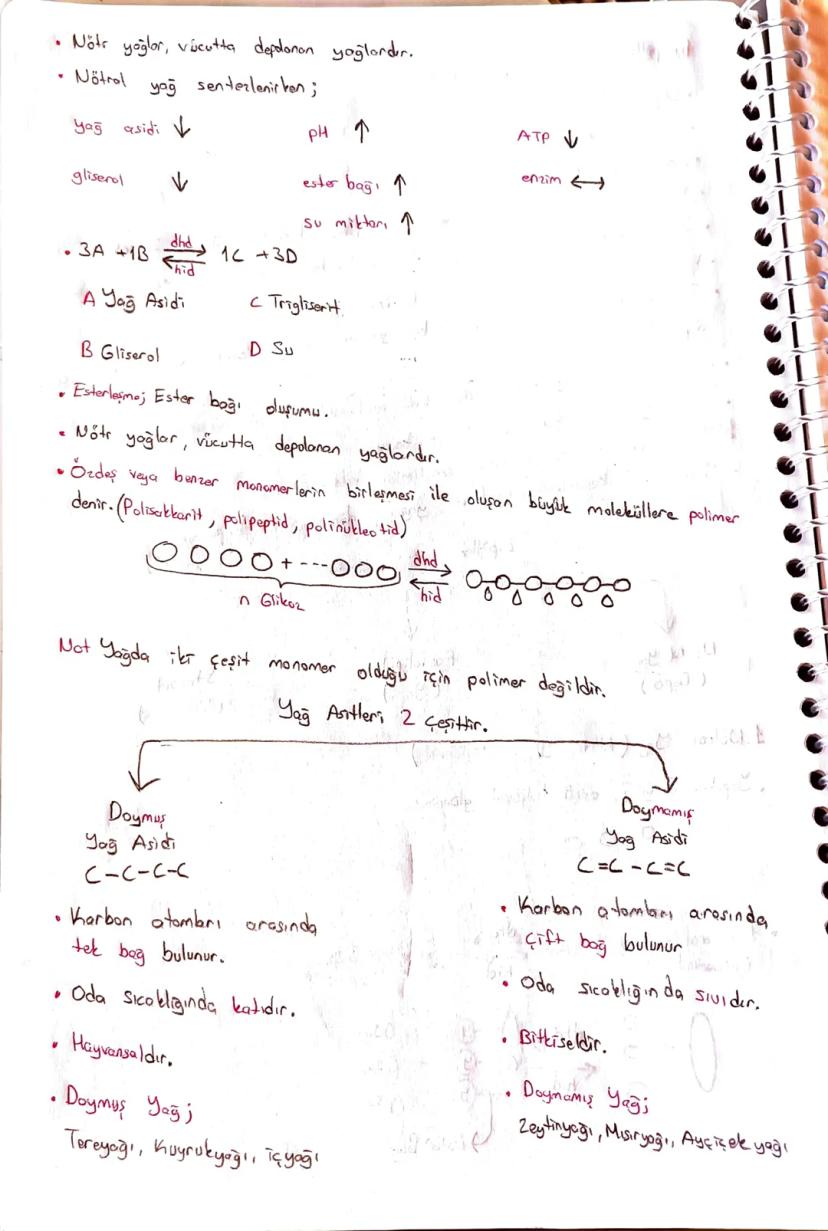 • Nötr yağlar, vücutta depolanan yağlardır.
• Nötral yağ sentezlenirken;
yağ asidi ↓ pH ↑ ATP ↓
gliserol ↓ ester bağı ↑ enzim ↔
su miktarı ↑
• 3A +1B dhd ⇌ hid 1C +3D
A Yağ Asidi C Trigliserit
B Gliserol D Su
• Esterleşme; Ester bağı oluşumu.
• Nötr yağlar, vücutta depolanan yağlardır.
• Özdeş veya benzer monomerlerin birleşmesi ile oluşan büyük moleküllere polimer
denir. (Polisakkarit, polipeptid, polinükleotid)
+ --- dhd ⇌ hid
n Glikoz
Not Yağda iki çeşit monomer olduğu için polimer değildir.
Yağ Asitleri 2 Çeşittir.
Doymuş
Yağ Asidi
C-C-C-C
• Karbon atomları arasında
tek bağ bulunur.
• Oda sıcaklığında katıdır.
• Hayvansaldır.
• Doymuş Yağ;
Tereyağı, Kuyrukyağı, içyağı
Doymamış
Yağ Asidi
C=C-C=C
• Karbon atomları arasında
çift bağ bulunur
• Oda sıcaklığında sıvıdır.
• Bitkiseldir.
• Doymamış Yağ;
Zeytinyağı, Mısıryağı, Ayçiçek yağı